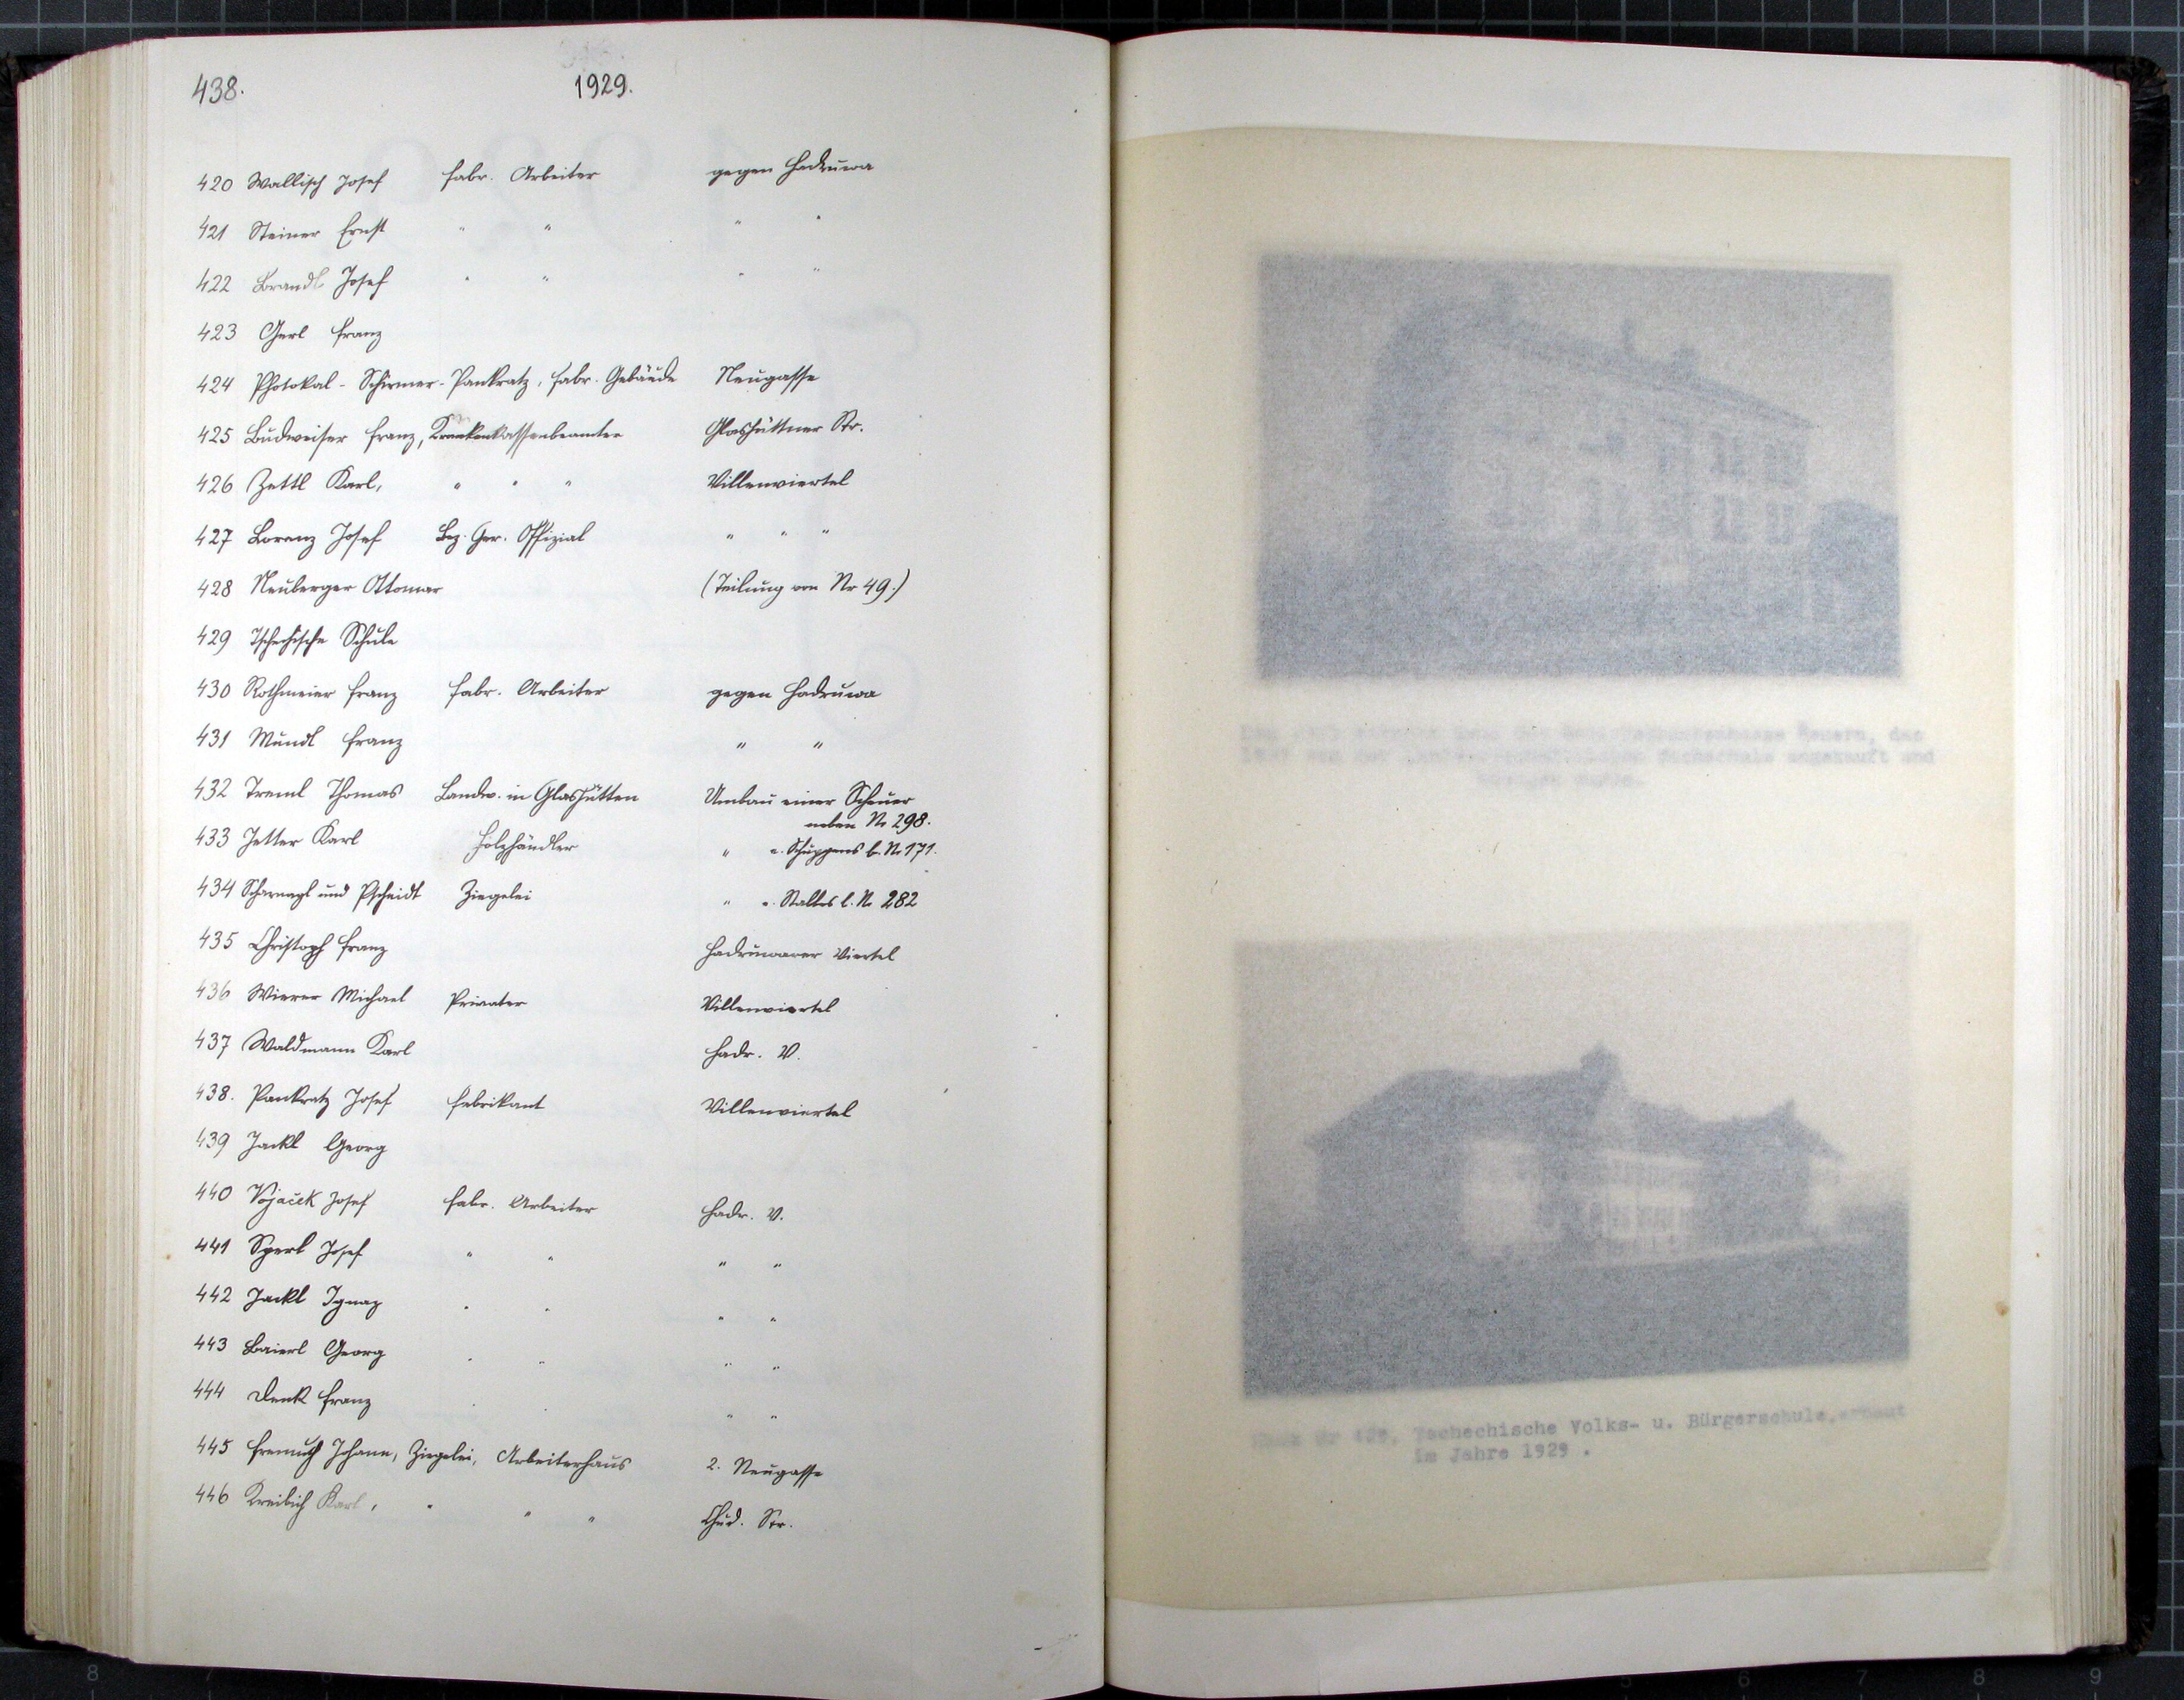 438.
1929.
420 Wallisch Josef fabr. Arbeiter gegen Hadruwa
421 Steiner Ernst " " " "
422 Brandl Josef " " " "
423 Gerl Franz
424 Photokal-Schirmer-Pankratz, fabr. Gebäude Neugasse
425 Budweiser Franz, Krankenkassenbeamter Glashüttner Str.
426 Zettl Karl, " " " Villenviertel
427 Lorenz Josef Bez. Ger. Offizial " " "
428 Neuberger Ottomar (Teilung von Nr 49.)
429 Tschechische Schule
430 Rothmeier Franz fabr. Arbeiter gegen Hadruwa
431 Mundl Franz " "
432 Treml Thomas Landw. in Glashütten Umbau einer Scheuer
neben Nr 298.
433 Jetter Karl Holzhändler " e. Schuppens b. Nr 171.
434 Scharnagl und Pscheidt Ziegelei " e. Stalles b. Nr 282
435 Christoph Franz Hadruwaer Viertel
436 Wierer Michael Privater Villenviertel
437 Waldmann Karl Hadr. V.
438. Pankratz Josef Fabrikant Villenviertel
439 Jackl Georg
440 Vojaček Josef fabr. Arbeiter Hadr. V.
441 Sperl Josef " " " "
442 Jackl Ignaz " " " "
443 Baierl Georg " " " "
444 Denk Franz " " " "
445 Fremuth Johann, Ziegelei, Arbeiterhaus 2. Neugasse
446 Kreibich Karl, " " " Chud. Str.
Neuern, das
1927 von der Fachschule angekauft und
wurde.
Haus Nr 429, Tschechische Volks- u. Bürgerschule, erbaut
im Jahre 1929 .